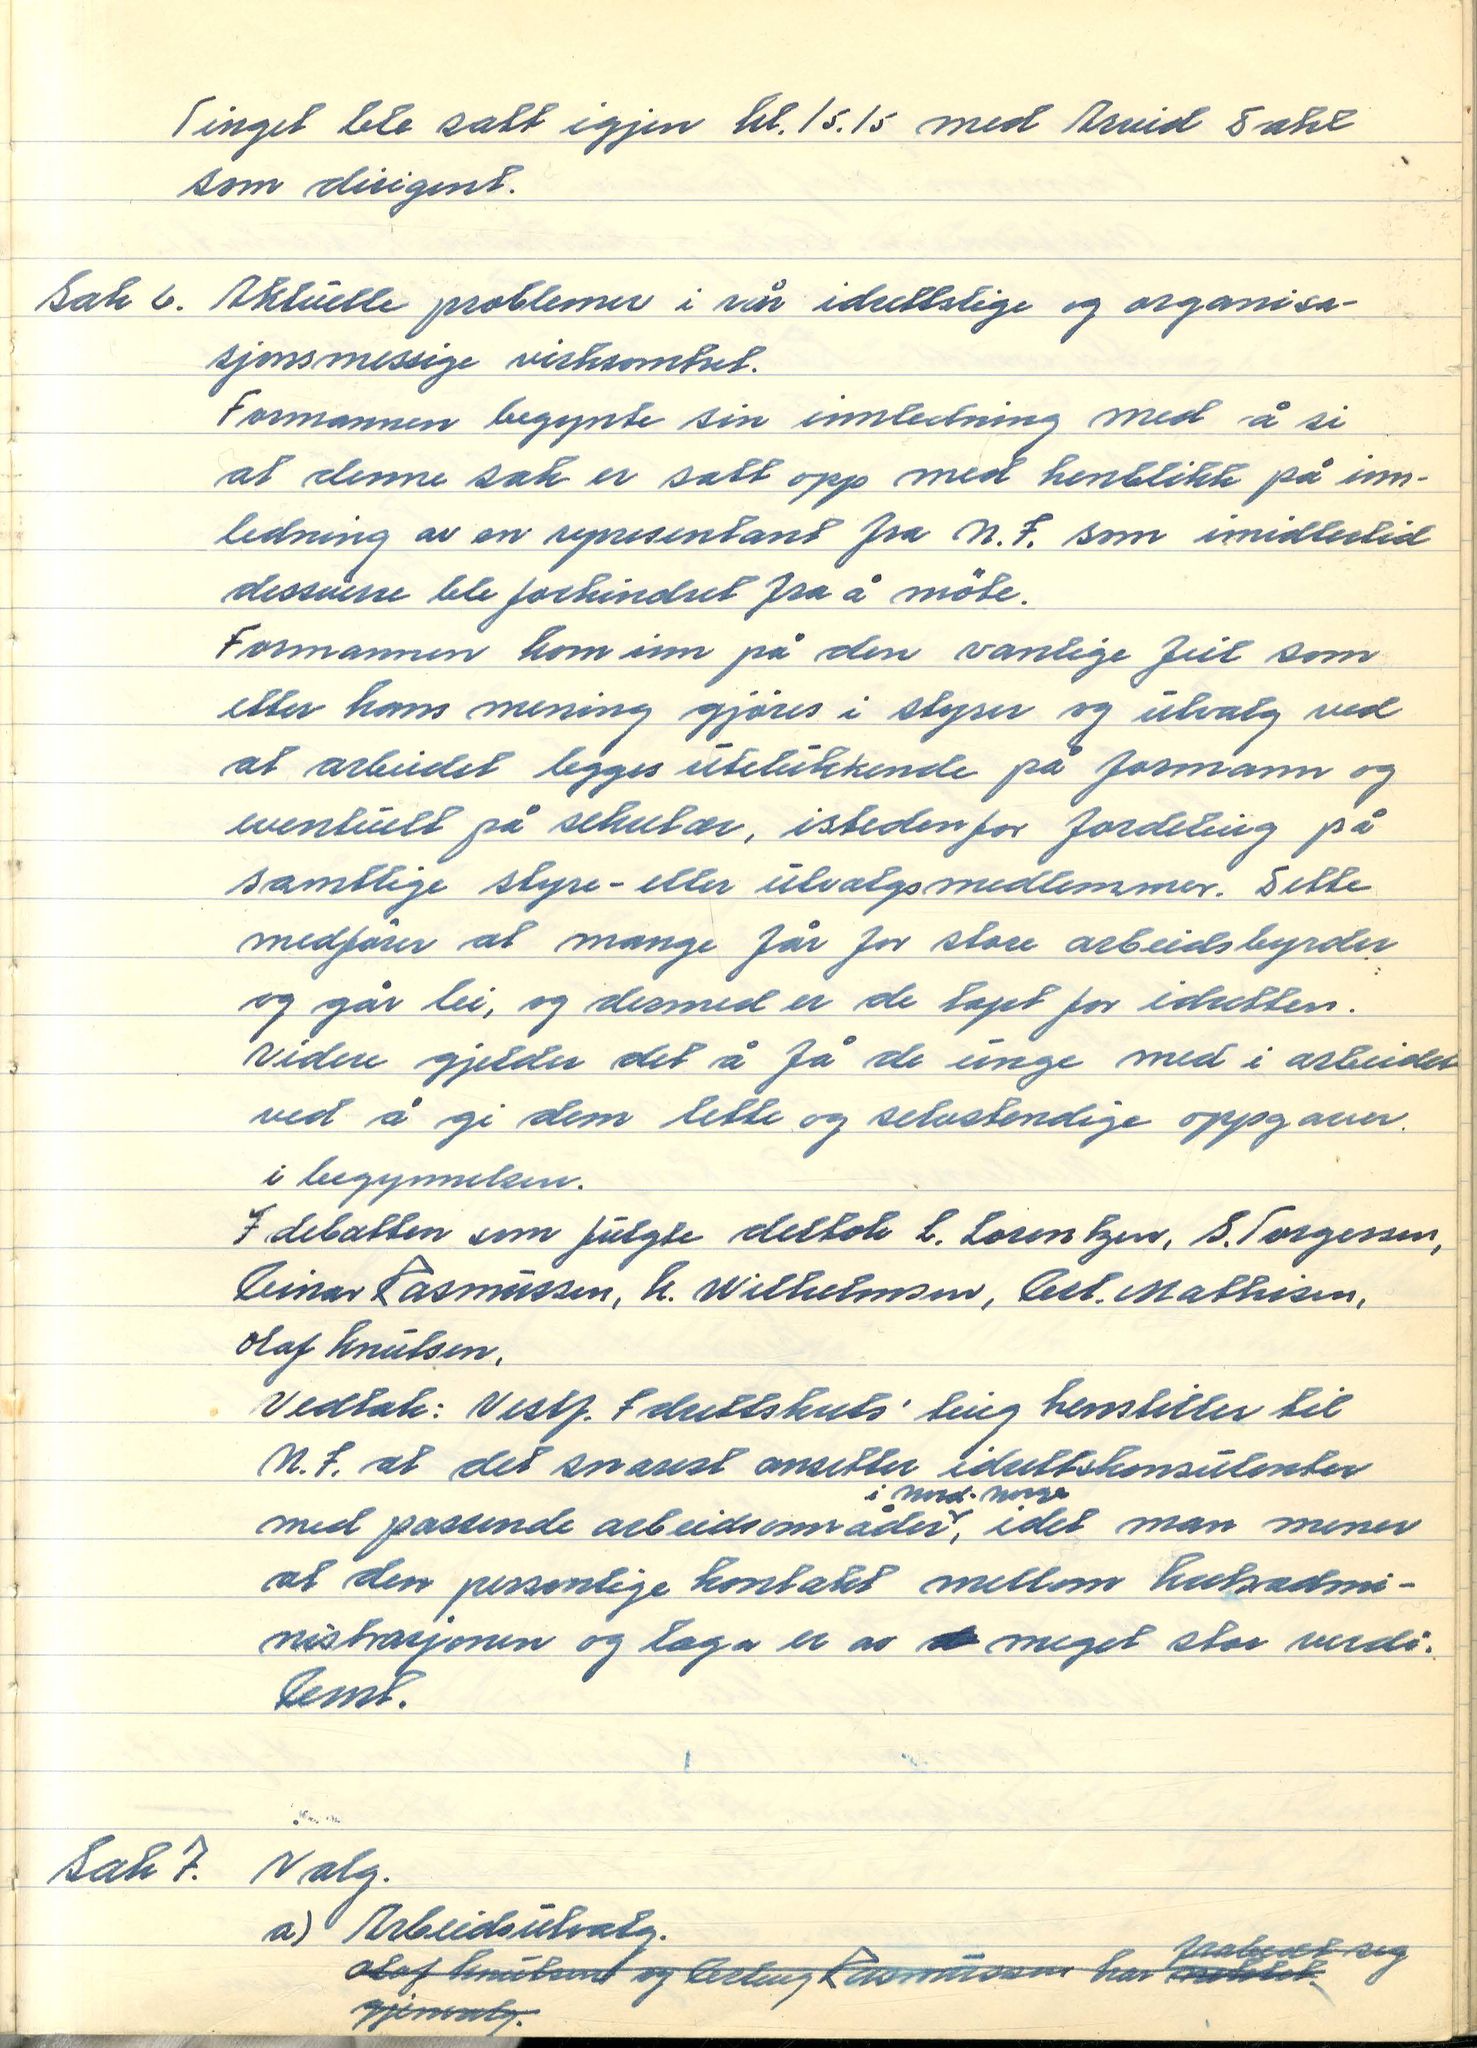 Tinget ble satt igjen kl. 15.15 med Arvid Dahl
som dirigent.
Sak 6. Aktuelle problemer i vår idrettslige og organisa-
sjonsmessige virksomhet.
Formannen begynte sin innledning med å si
at denne sak er satt opp med henblikk på inn-
ledning av en representant fra N.I. som imidlertid
dessverre ble forhindret fra å möte.
Formannen kom inn på den vanlige feil som
etter hans mening gjöres i styrer og utvalg ved
at arbeidet legges utelukkende på formann og
eventuelt på sekretær, istedenfor fordeling på
samtlige styre- eller utvalgsmedlemmer. Dette
medförer at mange får for store arbeidsbyrder
og går lei, og dermed er de tapt for idretten.
Videre gjelder det å få de unge med i arbeidet
ved å gi dem lette og selvstendige oppgaver.
i begynnelsen.
I debatten som fulgte deltok L. Lorentzen, S. Torgersen,
Einar Rasmussen, H. Wilhelmsen, Edl. Mathisen,
Olaf Knutsen.
Vedtak: Vestf. Idrettskrets' ting henstiller til
N.I. at det snarest ansetter idrettskonsulenter
i Nord-Norge
med passende arbeidsområder, idet man mener
at den personlige kontakt mellom kretsadmi-
nistrasjonen og laga er av meget stor verdi.
Enst.
Sak 7. Valg.
a) Arbeidsutvalg.
frabedt seg
Olaf Knutsen og Erling Rasmussen har
gjenvalg.